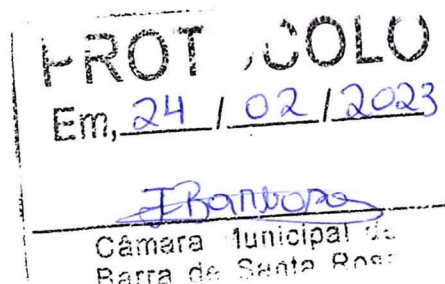 PROTOCOLO
Em, 24 / 02 / 2023
JBarbosa
Câmara Municipal de
Barra de Santa Rosa